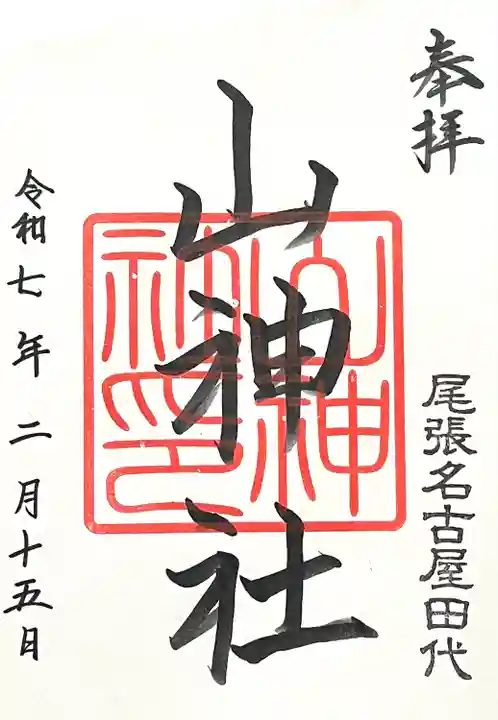 奉拝
尾張名古屋田代
山神社
山神
神印
令和七年二月十五日